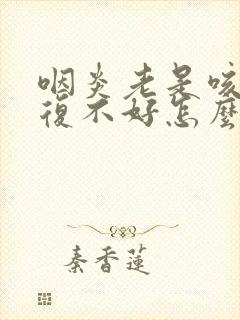 咽炎老是咳
復不好怎麼
秦香蓮